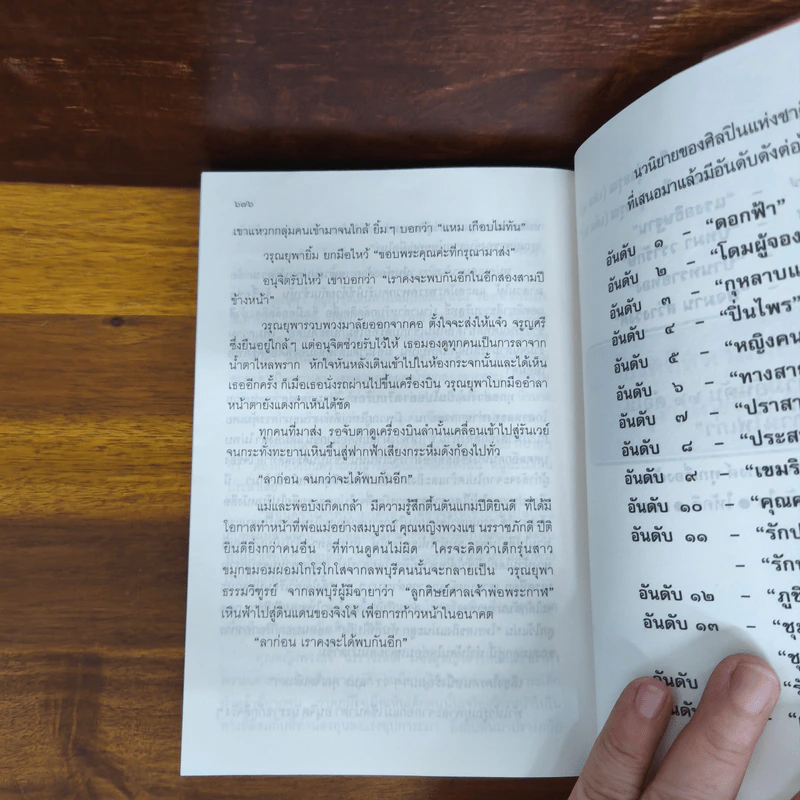 ๖๓๖
เขาแหวกกลุ่มคนเข้ามาจนใกล้ ยิ้มๆ บอกว่า “แหม เกือบไม่ทัน”
วรุณยุพายิ้ม ยกมือไหว้ “ขอบพระคุณค่ะที่กรุณามาส่ง”
อนุจิตรับไหว้ เขาบอกว่า “เราคงจะพบกันอีกในอีกสองสามปี
ข้างหน้า”
วรุณยุพารวบพวงมาลัยออกจากคอ ตั้งใจจะส่งให้แจ๋ว จรูญศรี
ซึ่งยืนอยู่ใกล้ๆ แต่อนุจิตช่วยรับไว้ให้ เธอมองดูทุกคนเป็นการลาจาก
น้ำตาไหลพราก หักใจหันหลังเดินเข้าไปในห้องกระจกนั้นและได้เห็น
เธออีกครั้ง ก็เมื่อเธอนั่งรถผ่านไปขึ้นเครื่องบิน วรุณยุพาโบกมืออำลา
หน้าตายังแดงก่ำเห็นได้ชัด
ทุกคนที่มาส่ง รอจับตาดูเครื่องบินลำนั้นเคลื่อนเข้าไปสู่รันเวย์
จนกระทั่งทะยานเหินขึ้นสู่ฟากฟ้าเสียงกระหึ่มดังก้องไปทั่ว
“ลาก่อน จนกว่าจะได้พบกันอีก”
แม่และพ่อบังเกิดเกล้า มีความรู้สึกตื้นตันแกมปีติยินดี ที่ได้มี
โอกาสทำหน้าที่พ่อแม่อย่างสมบูรณ์ คุณหญิงพวงแข นรราชภักดี ปีติ
ยินดียิ่งกว่าคนอื่น ที่ท่านดูคนไม่ผิด ใครจะคิดว่าเด็กรุ่นสาว
ขมุกขมอมผอมโกโรโกโสจากลพบุรีคนนั้นจะกลายเป็น วรุณยุพา
ธรรมวิฑูรย์ จากลพบุรีผู้มีฉายาว่า “ลูกศิษย์ศาลเจ้าพ่อพระกาฬ”
เหินฟ้าไปสู่ดินแดนของจิงโจ้ เพื่อการก้าวหน้าในอนาคต
“ลาก่อน เราคงจะได้พบกันอีก”
นวนิยายของศิลปินแห่งชา
ที่เสนอมาแล้วมีอันดับดังต่อ
อันดับ ๑ – “ดอกฟ้า”
อันดับ ๒ – “โดมผู้จอง
อันดับ ๓ – “กุหลาบแ
อันดับ ๔ – “ปิ่นไพร”
อันดับ ๕ – “หญิงคน
อันดับ ๖ – “ทางสาย
อันดับ ๗ – “ปราสา
อันดับ ๘ – “ประส
อันดับ ๙ – “เขมริ
อันดับ ๑๐ – “คุณค
อันดับ ๑๑ – “รักป
– “รัก
อันดับ ๑๒ – “ภูชิ
อันดับ ๑๓ – “ชุ
“ชุ
อันดับ